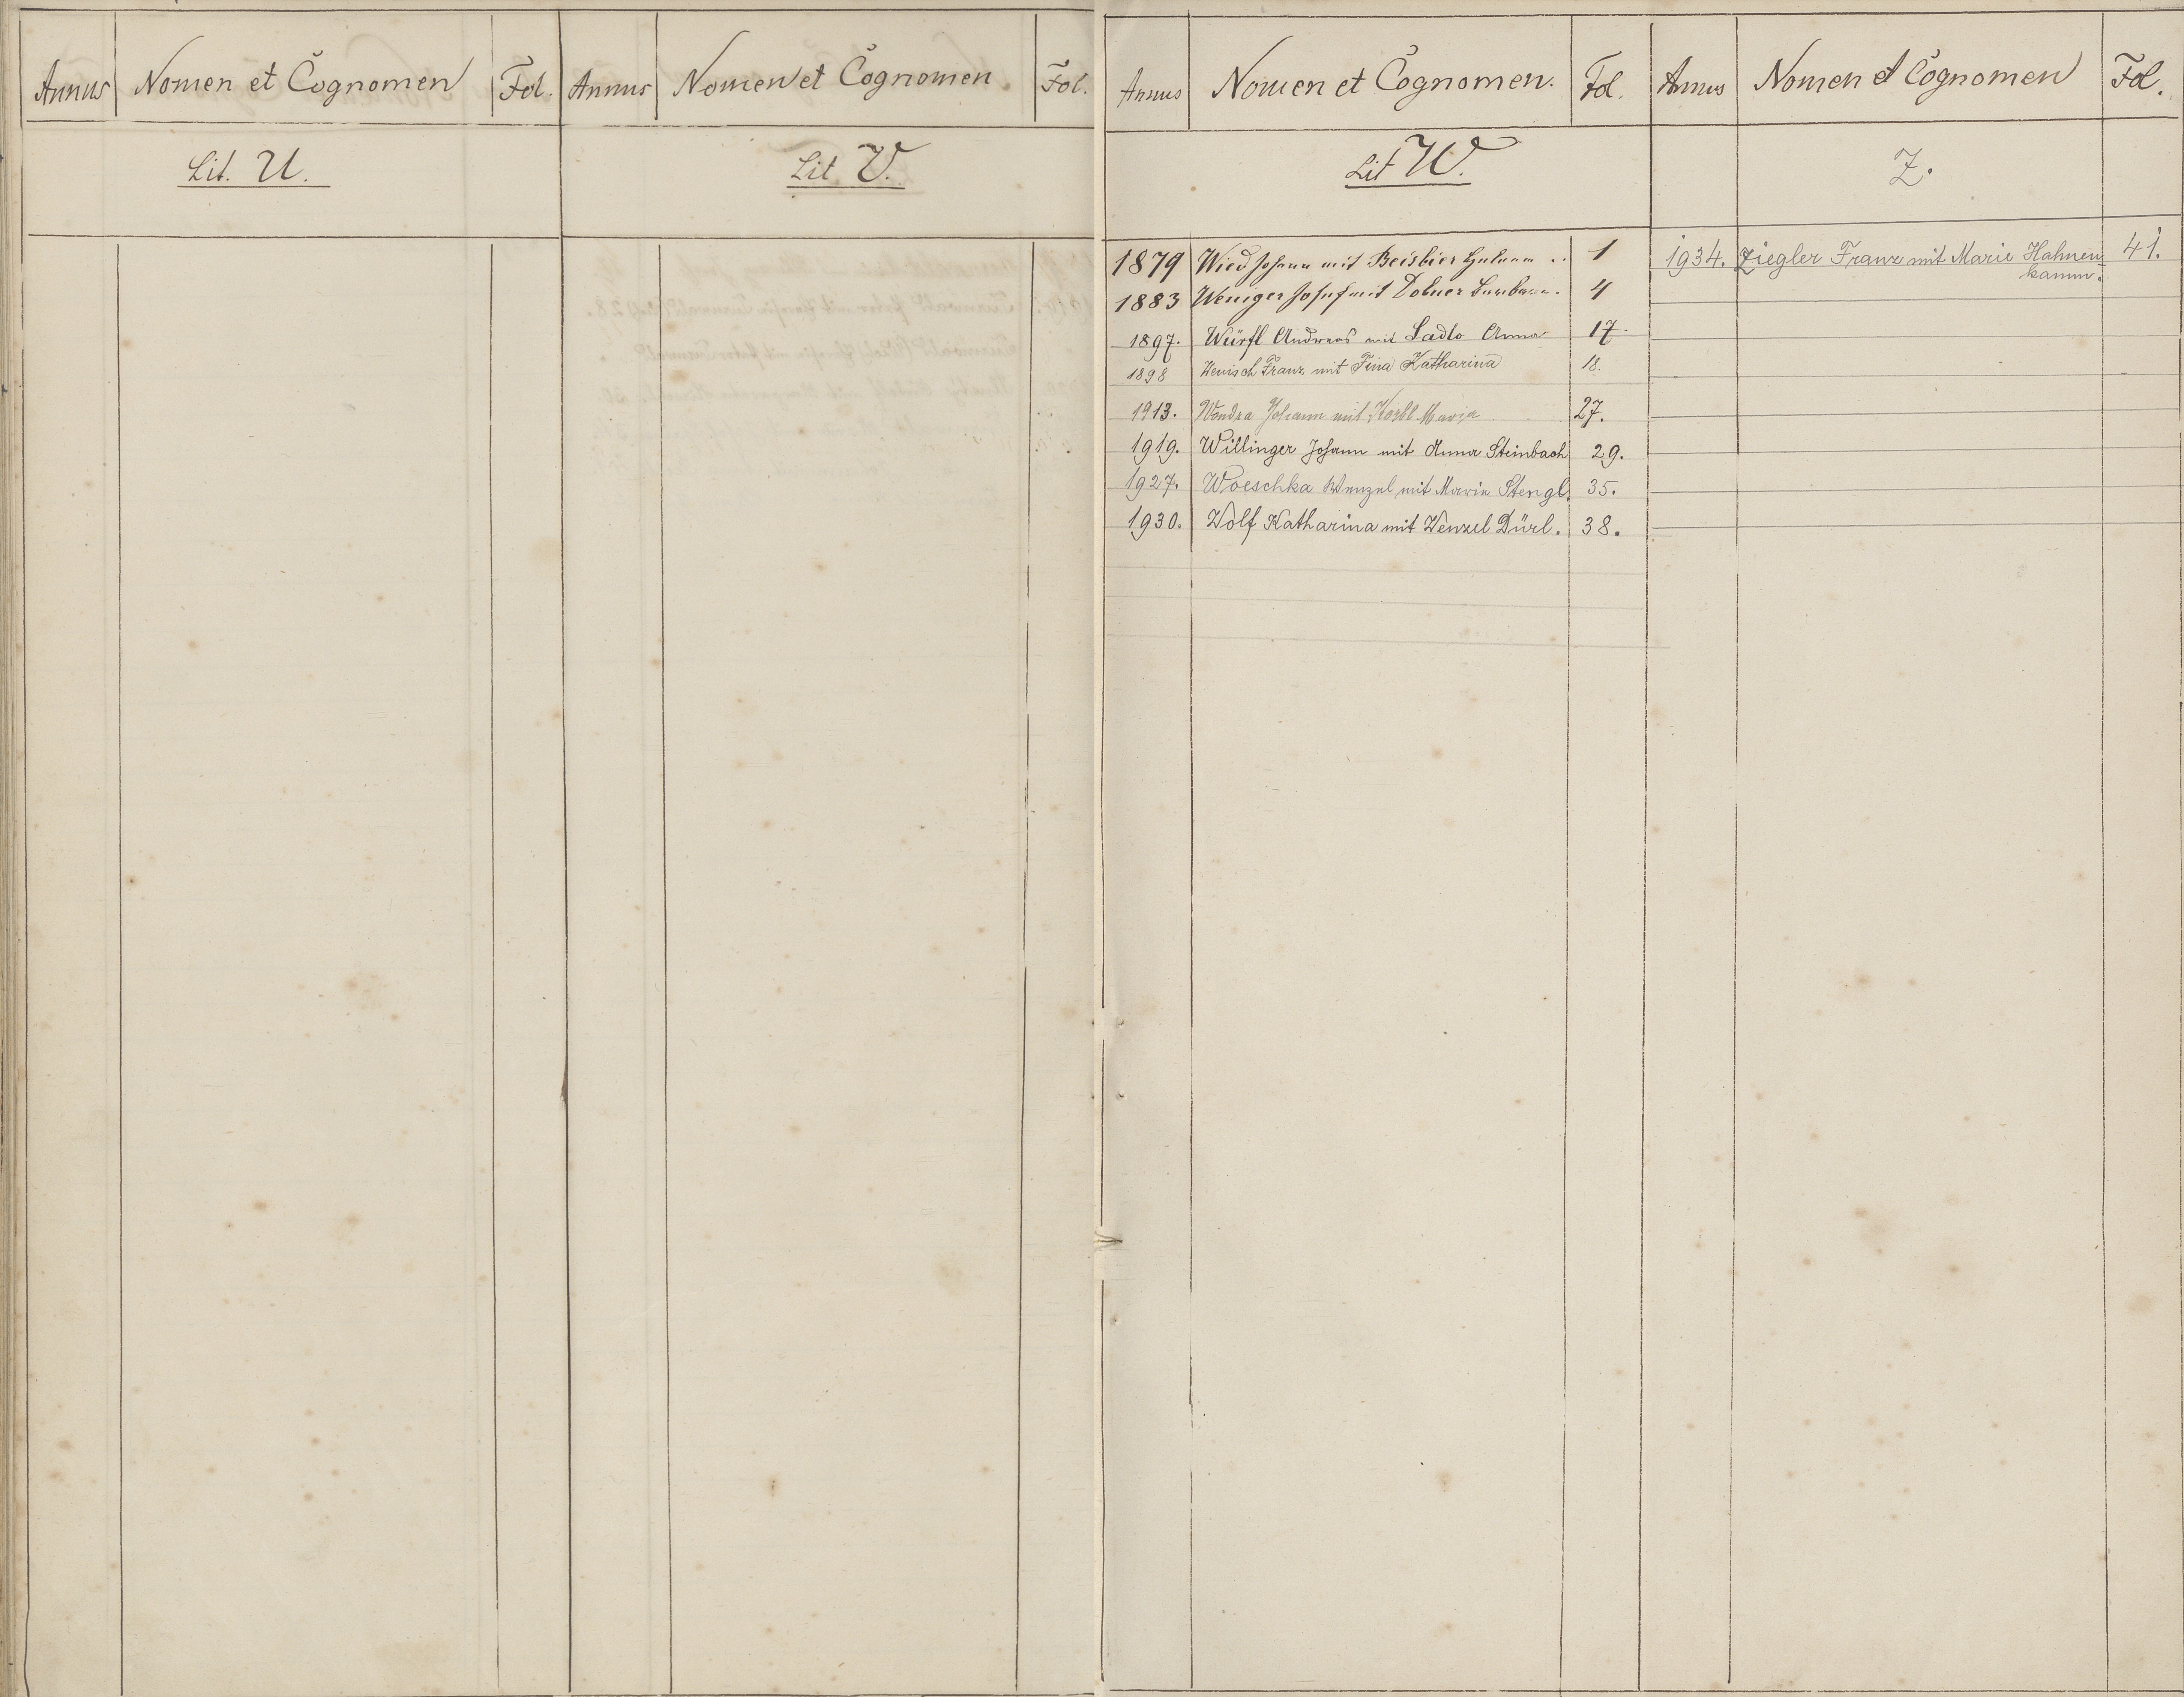 Annus Nomen et Cognomen Fol. Annus Nomen et Cognomen. Fol.
Lit. U. Lit V.
Annus Nomen et Cognomen. Fol. Annus Nomen et Cognomen Fol.
Lit W. Z.
1879 Wied Johann mit Beisbier 1
1883 Weniger Josef mit Dobner Barbara. 4
1897. Würfl Andreas mit Ladlo Anna 17.
1898 Wenisch Franz mit Fina Katharina 18.
1913. Wondra Johann mit Korbl Maria 27.
1919. Willinger Johann mit Anna Steinbach 29.
1927. Woeschka Wenzel mit Marie Stengl. 35.
1930. Wolf Katharina mit Wenzel Dürl. 38.
1934. Ziegler Franz mit Marie Hahnen- 41.
kamm.